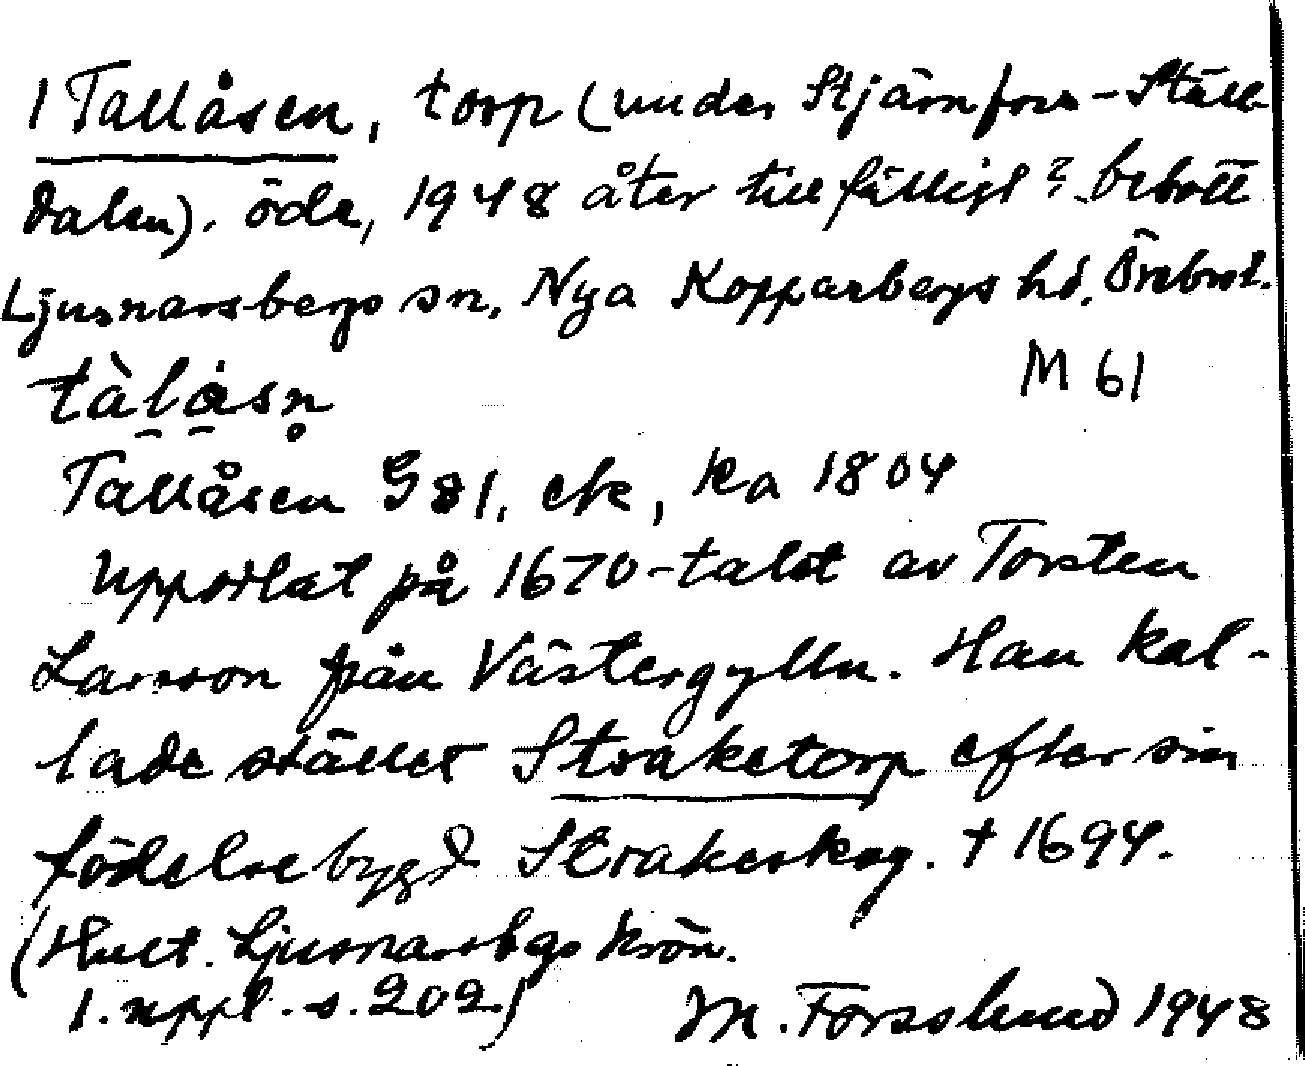 1 Tallåsen, torp (under Stjärnfors-Ställ-
dalen). öde, 1948 åter tillfälligt? bebott
Ljusnarsbergs sn, Nya Kopparbergs hd, Örebro l.
M 61
tàl̠å̠sn̥
Tallåsen G 81, ek, ka 1804
Upporlat på 1670-talet av Torsten
Larsson från Västergylln. Han kal-
lade stället Straketorp efter sin
födelsebygd Strakeskog. † 1694.
(Hult. Ljusnarsbgs krön.
1. uppl. s. 202.)
M. Forsslund 1948